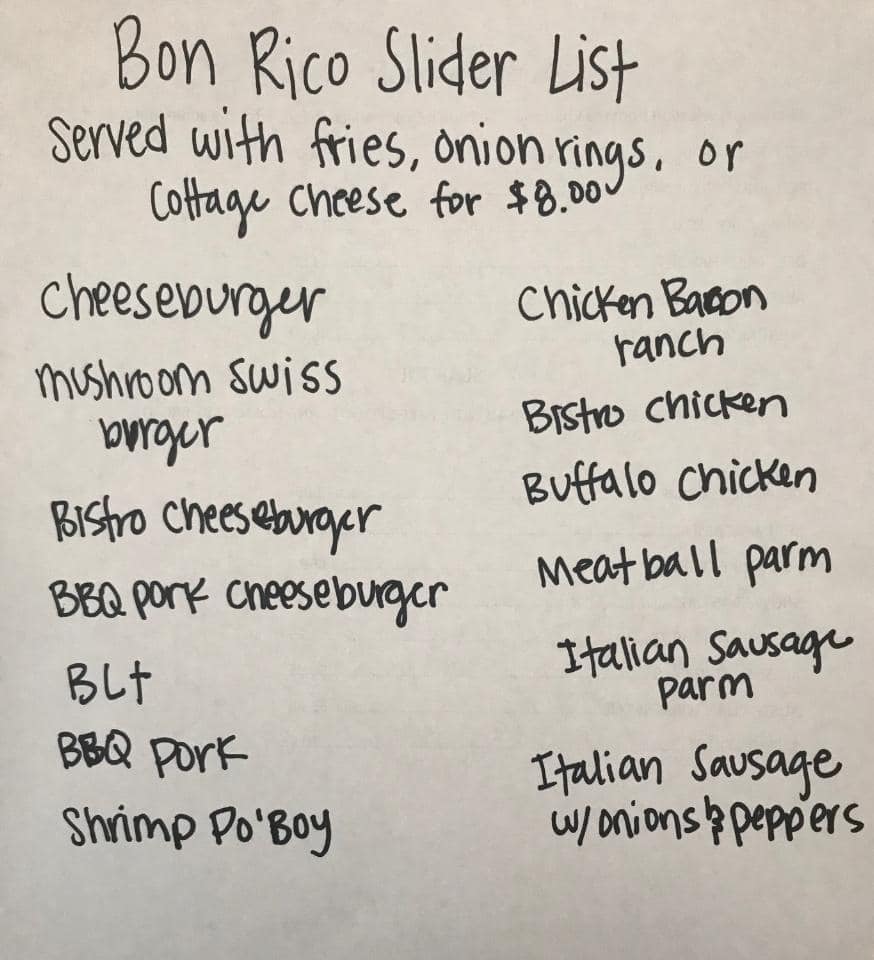 Bon Rico Slider List
Served with fries, onion rings, or
Cottage cheese for $8.00
Cheeseburger
mushroom swiss
burger
Bistro cheeseburger
BBQ pork cheeseburger
BLt
BBQ pork
Shrimp Po'Boy
Chicken Bacon
ranch
Bistro chicken
Buffalo chicken
Meatball parm
Italian Sausage
parm
Italian Sausage
w/onions & peppers